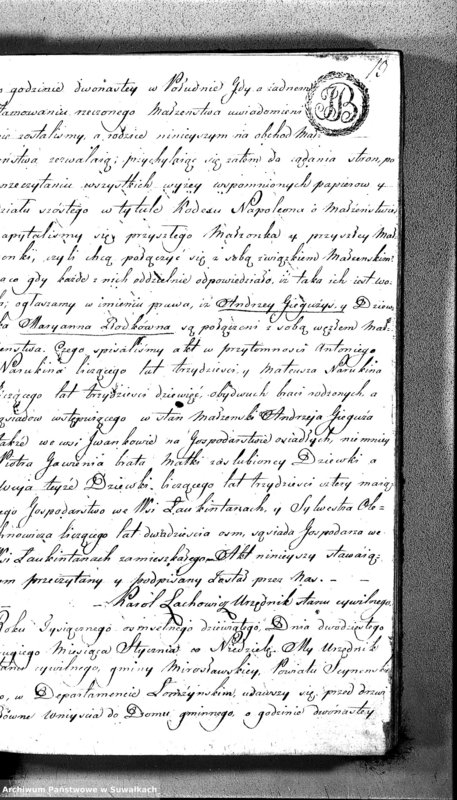 godzinie dwonastey w Południe Gdy o żadnem
tamowaniu rzeczonego Małżeństwa uwiadomieni
nie zostaliśmy, a rodzice ninieyszym na obchod Mał-
żeństwa zezwalaią; przychylaiąc się zatem do żądania stron, po
przeczytaniu wszystkich wyżey wspomnionych papierow y
działu szostego w tytule Kodexu Napoleona o Małżeństwie
zapytaliśmy się przyszłego Małżonka y przyszłey Mał
żonki, czyli chcą połączyć się z sobą związkiem Małżeńskim
na co gdy każde z nich oddzielnie odpowiedziało, iż taka ich iest wo-
la; ogłaszamy w imieniu prawa, iż Andrzey Giegużys y Dziew
ka Maryanna Dodkowna są połączeni z sobą węzłem Mał-
żeństwa. Czego spisaliśmy akt w przytomności Antoniego
Narukina liczącego lat trzydzieści, y Mateusza Narukina
liczącego lat trzydzieści dziewięć, obydwuch braci rodzonych, a
sąsiadow wstępuiącego w stan małżenski Andrzeja Gieguża
także we wsi Iwankowie na Gospodarstwie osiadłych, niemniey
Piotra Gawienia brata Matki zaslubioney Dziewki a
Wuja teyże Dziewki, liczącego lat trzydzieści cztery maią-
cego Gospodarstwo we Wsi Laukintanach, y Sylwestra Ole-
chnowicza liczącego lat dwadzieścia osm, sąsiada Gospodarza we
Wsi Laukintanach zamieszkałego. Akt ninieyszy stawaią-
cym przeczytany y podpisany został przez Nas. —
Karol Lachowicz Urzędnik stanu cywilnego
Roku Tysiącznego osmsetnego dziewiątego, Dnia dwudziestego
drugiego Miesiąca Stycznia w Niedzielę. My Urzędnik
stanu cywilnego, gminy Mirosławskiey, Powiatu Seynenskie
go, w Departamencie Łomżynskim, udawszy się przed drzwi
głowne wniyscia do Domu gminnego, o godzinie dwonastey
Archiwum Państwowe w Suwałkach